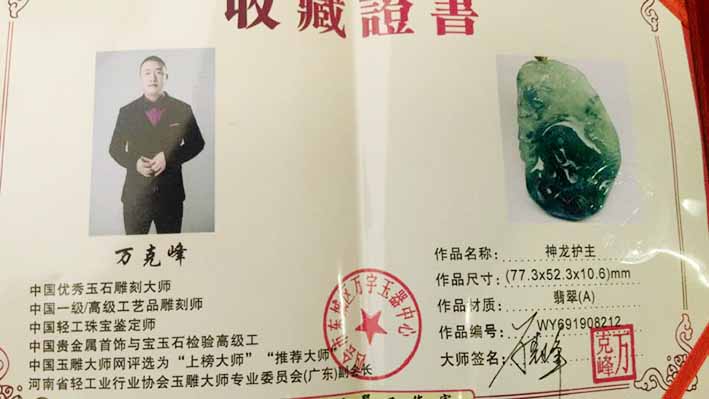 收藏證書
万克峰
中国优秀玉石雕刻大师
中国一级/高级工艺品雕刻师
中国轻工珠宝鉴定师
中国贵金属首饰与宝玉石检验高级工
中国玉雕大师网评选为“上榜大师”“推荐大师”
河南省轻工业行业协会玉雕大师专业委员会(广东)副会长
作品名称: 神龙护主
作品尺寸: (77.3x52.3x10.6)mm
作品材质: 翡翠(A)
作品编号: WY691908212
大师签名:
万克峰